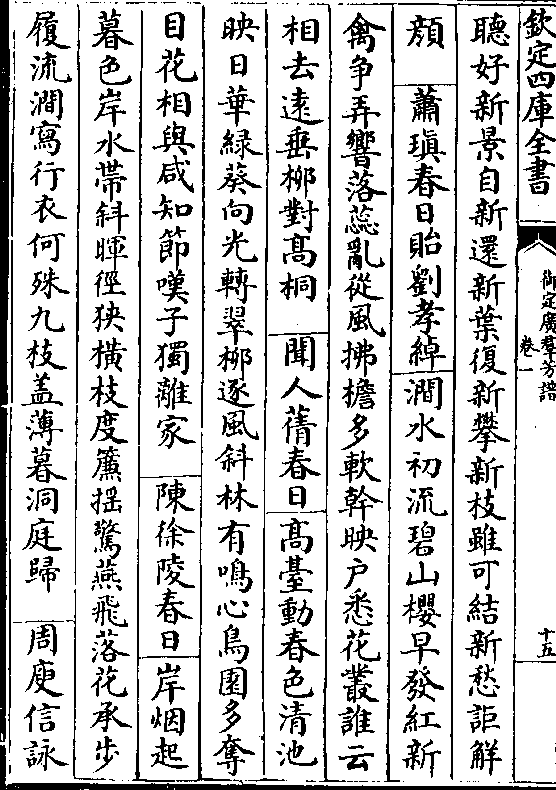 欽定四庫全書
御定廣羣芳譜
卷一
十五
聽好新景自新還新葉復新攀新枝雖可結新愁詎解
顔 蕭瑱春日貽劉孝綽 澗水初流碧山櫻早發紅新
禽争弄響落蕊亂從風拂檐多軟幹映户悉花叢誰云
相去遠垂栁對髙桐 聞人蒨春日 髙臺動春色清池
映日華緑葵向光轉翠栁逐風斜林有鳴心鳥園多奪
目花相與咸知節嘆子獨離家 陳徐陵春日 岸烟起
暮色岸水帶斜暉徑狹横枝度簾揺驚燕飛落花承步
履流澗寫行衣何殊九枝盖薄暮洞庭歸 周庾信詠